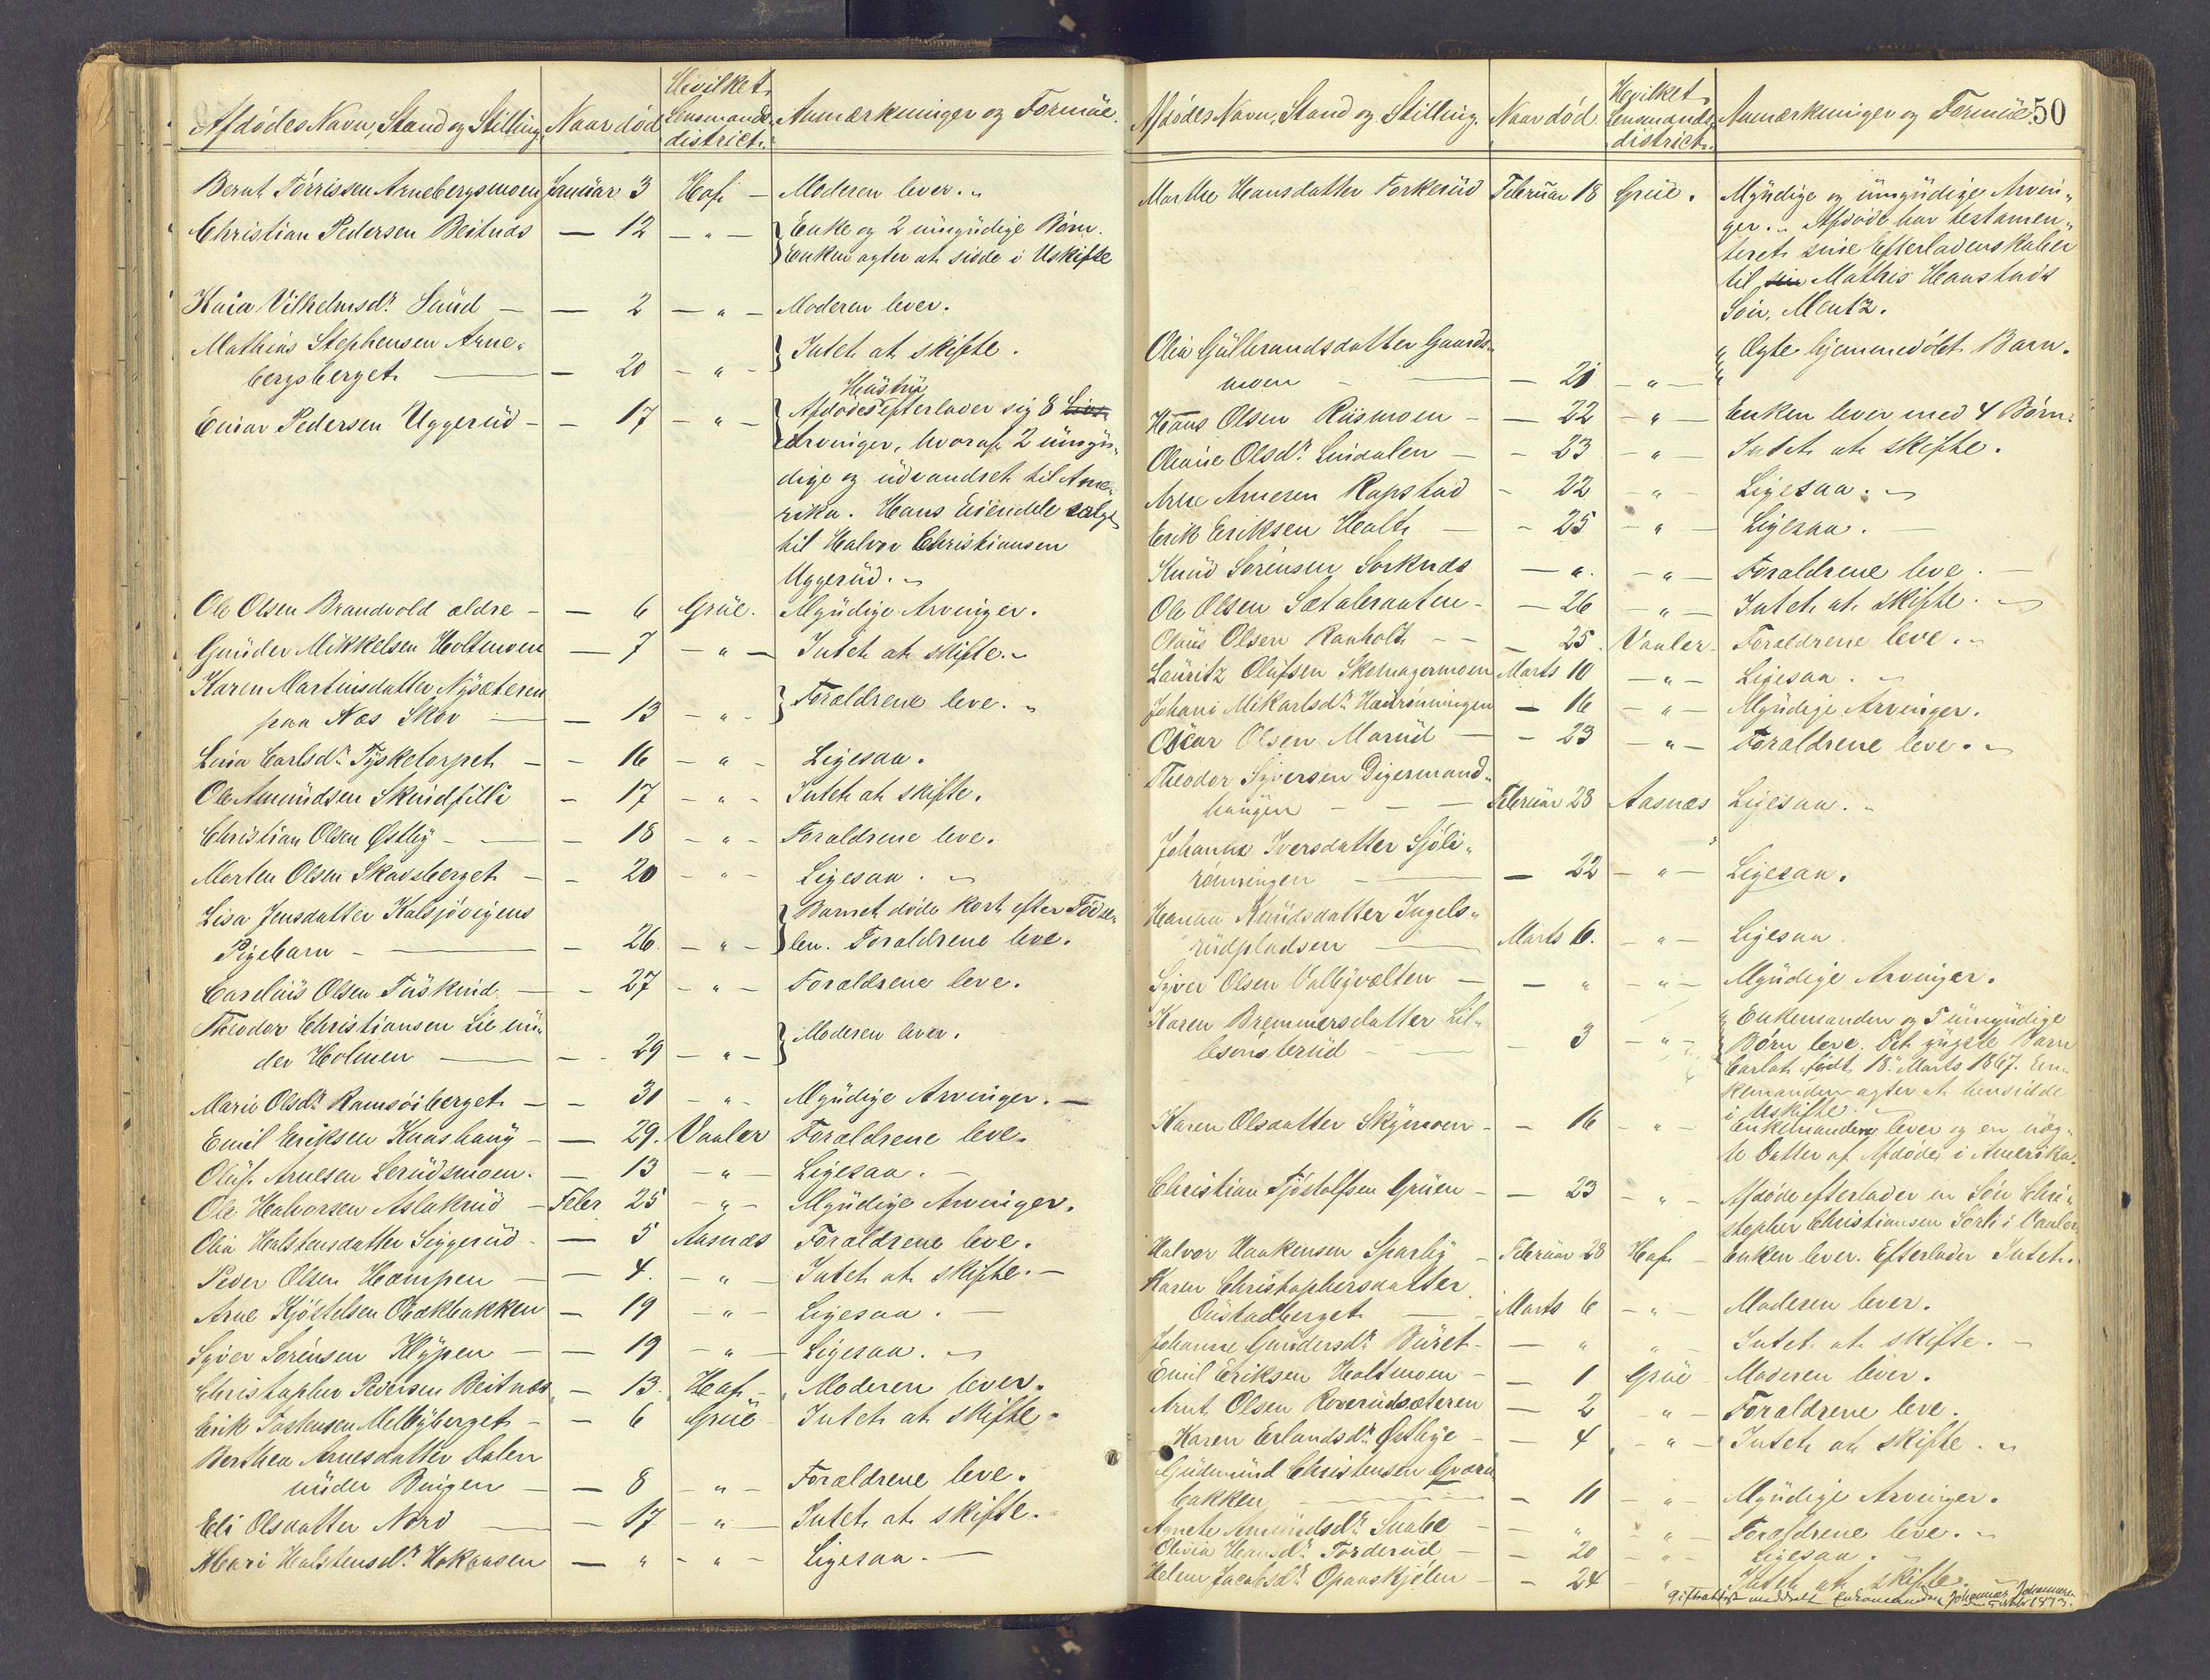 Afdødes Navn, Stand og Stilling. Naar død Hvilket Lensmands- district. Anmærkninger og Formue.
Bernt Tørrissen Arnebergsmoen Januar 3 Hof - Moderen lever.
Christian Pedersen Beitnæs - 12 - " - Enke og 2 umyndige Børn.
Enken agter at sidde i Uskifte
Kaia Vilhelmsdr. Sund - - 2 - " - Moderen lever.
Mathias Stephensen Arne-
bergsberget - 20 - " - Intet at skifte.
Hustru
Einar Pedersen Uggerud - - 17 - " - Afdødes efterlader sig 8 Livs-
Arvinger, hvoraf 2 umyn-
dige og udvandret til Ame-
rika. Hans Eiendele solgt
til Halvor Christiansen
Uggerud.
Ole Olsen Brandvold ældre - - 6 Grue. Myndige Arvinger.
Gunder Mikkelsen Holtmoen - 7 - " - Intet at skifte.
Karen Martinsdatter Nysæteren
paa Næs Skov - - 13 - " - Forældrene leve.
Lina Carlsdr. Tysketorpet - - 16 - " - Ligesaa.
Ole Amundsen Skindfilli - 17 - " - Intet at skifte.
Christian Olsen Østby - - 18 - " - Forældrene leve.
Morten Olsen Skavsberget - - 20 - " - Ligesaa.
Lisa Jensdatter Kalsjøvigens Barnet døde kort efter Fødse-
Pigebarn - - 26. - " - len. Forældrene leve.
Carelius Olsen Tuskind - - 27 - " - Forældrene leve.
Theodor Christiansen Lie un-
der Holmen - - 29 - " - Moderen lever.
Marie Olsdr. Ramsøiberget - - 31 - " - Myndige Arvinger. -
Emil Eriksen Knashaug - - 29. Vaaler Forældrene leve.
Oluf Arnesen Lerudsmoen. - 13 - " - Ligesaa. -
Ole Halvorsen Aslakrud - Febr 25 - " - Myndige Arvinger.
Olia Halstensdatter Siggerud - - 5 Aasnæs Forældrene leve.
Peder Olsen Hæmpen - - 4. - " - Intet at skifte. -
Arne Kjøstelsen Bækbakken - 19 - " - Ligesaa. -
Syver Sørensen Klypen - - 19 - " - Ligesaa.
Christopher Pedersen Beitnæs - 13. Hof - Moderen lever.
Erik Tostensen Melbyberget - - 6 Grue Intet at skifte
Berthea Arnesdatter Dalen
under Bingen - - 8 - " - Forældrene leve.
Eli Olsdatter Nord - - 17 - " - Intet at skifte.
Mari Halstensdr. Hokaasen - " - " - Ligesaa. -
Afdødes Navn, Stand og Stilling. Naar død Hvilket Lensmands- district. Anmærkninger og Formue 50
Marthe Hansdatter Torkerud Februar 18 Grue. Myndige og umyndige Arvin-
ger. Afdøde har testamen-
teret sine Efterladenskaber
til sin Mathis Hanstads
Søn, Mentz.
Olia Gulbrandsdatter Gaards-
moen - - 21 - " - Ægte hjemmedøbt Barn.
Hans Olsen Riismoen - - 22 - " - Enken lever med 4 Børn.
Oleane Olsdr. Lindalen - - 23 - " - Intet at skifte.
Arne Arnesen Rapstad - 22 - " - Ligesaa.
Erik Eriksen Holt - - 25 - " - Ligesaa.
Knud Sørensen Sorknæs - " - " - Forældrene leve. -
Ole Olsen Sætabraaten - - 26 - " - Intet at skifte.
Olaus Olsen Ranholt - - 25. Vaaler - Forældrene leve.
Lauritz Olufsen Skomagermoen Marts 10 - " - Ligesaa.
Johani Mikarlsdr. Haurønningen - 16 - " - Myndige Arvinger.
Oscar Olsen Morud - - 23 - " - Forældrene leve.
Theodor Syversen Digermand-
haugen - - - Februar 28 Aasnæs Ligesaa.
Johanne Iversdatter Sjøli-
rønningen - - 22 - " - Ligesaa.
Hanna Knudsdatter Ingels-
rudpladsen - Marts 6. - " - Ligesaa
Syver Olsen Valbyvolten - - " - " - Myndige Arvinger.
Karen Bremmersdatter Lil- Enkemanden og 5 umyndige
lesønsterud - - 3 - " - Børn leve. Det yngste Barn
Carlot født 18. Marts 1867. En-
kemanden agter at hensidde
i Uskifte.
Karen Olsdatter Skymoen - - 16 - " - Enkemanden lever og en uæg-
te Datter af Afdøde i Amerika.
Christian Tjøstolfsen Gruen - - 23 - " - Afdøde efterlader en Søn Chri-
stopher Christiansen Sørli i Vaaler
Halvor Haakensen Sparby - Februar 28 Hof - Enken lever. Efterlader Intet.
Karen Christophersdatter
Oustadberget - Marts 6 - " - Moderen lever.
Johanne Gundersdr. Buret - " " - Intet at skifte. -
Emil Eriksen Holtmoen - - 1 Grue Moderen lever.
Arnt Olsen Roverudsæteren - 2 - " - Forældrene leve.
Karen Erlandsdr. Østbye - - 4 - " - Intet at skifte.
Gudmund Christensen Qværn
bakken - - 11 - " Myndige Arvinger.
Agnete Amundsdr. Snabe - - " - " - Forældrene leve.
Olivia Hansdr. Torderud - - 20 - " - Ligesaa.
Helene Jacobsdr. Opaaskjølen - - 24 - " - Intet at skifte
Giftrattest meddelt Enkemanden Johannes Johannesen